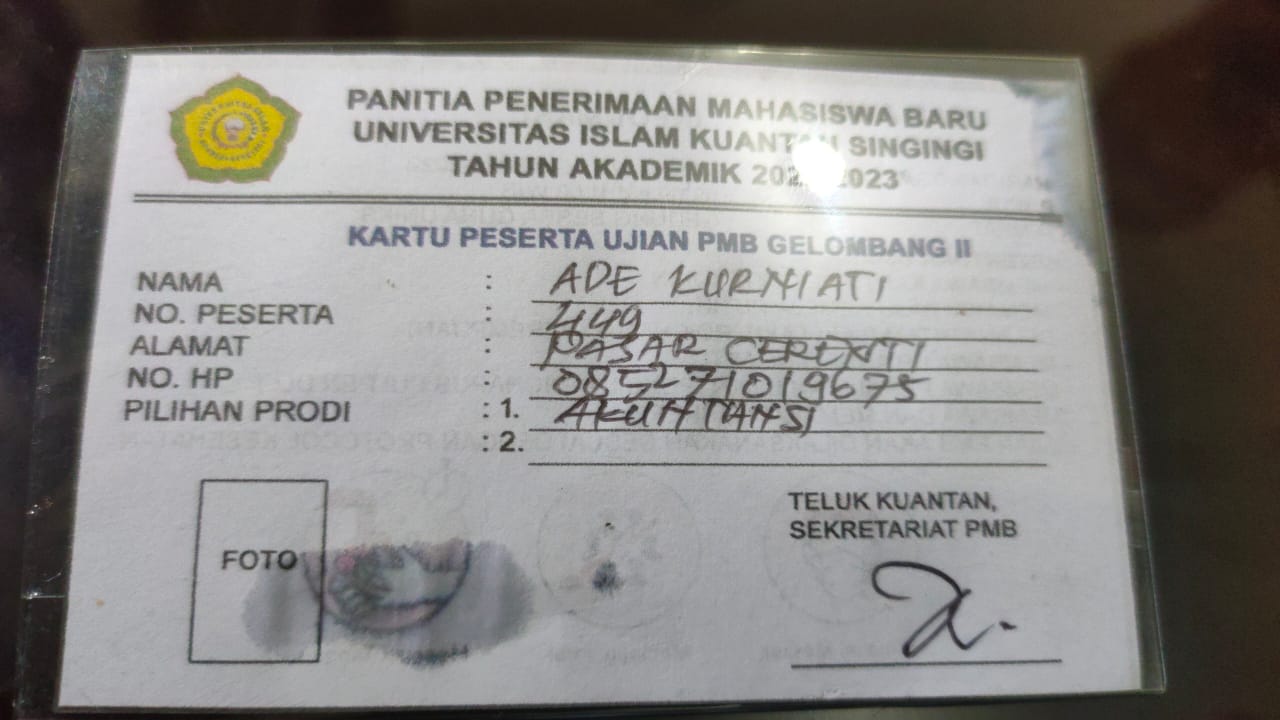 PANITIA PENERIMAAN MAHASISWA BARU
UNIVERSITAS ISLAM KUANTAN SINGINGI
TAHUN AKADEMIK 2023
KARTU PESERTA UJIAN PMB GELOMBANG II
NAMA : ADE KURNIATI
NO. PESERTA : 449
ALAMAT : PASAR CERENTI
NO. HP : 085271019675
PILIHAN PRODI : 1. AKUNTANSI
: 2.
FOTO
TELUK KUANTAN,
SEKRETARIAT PMB